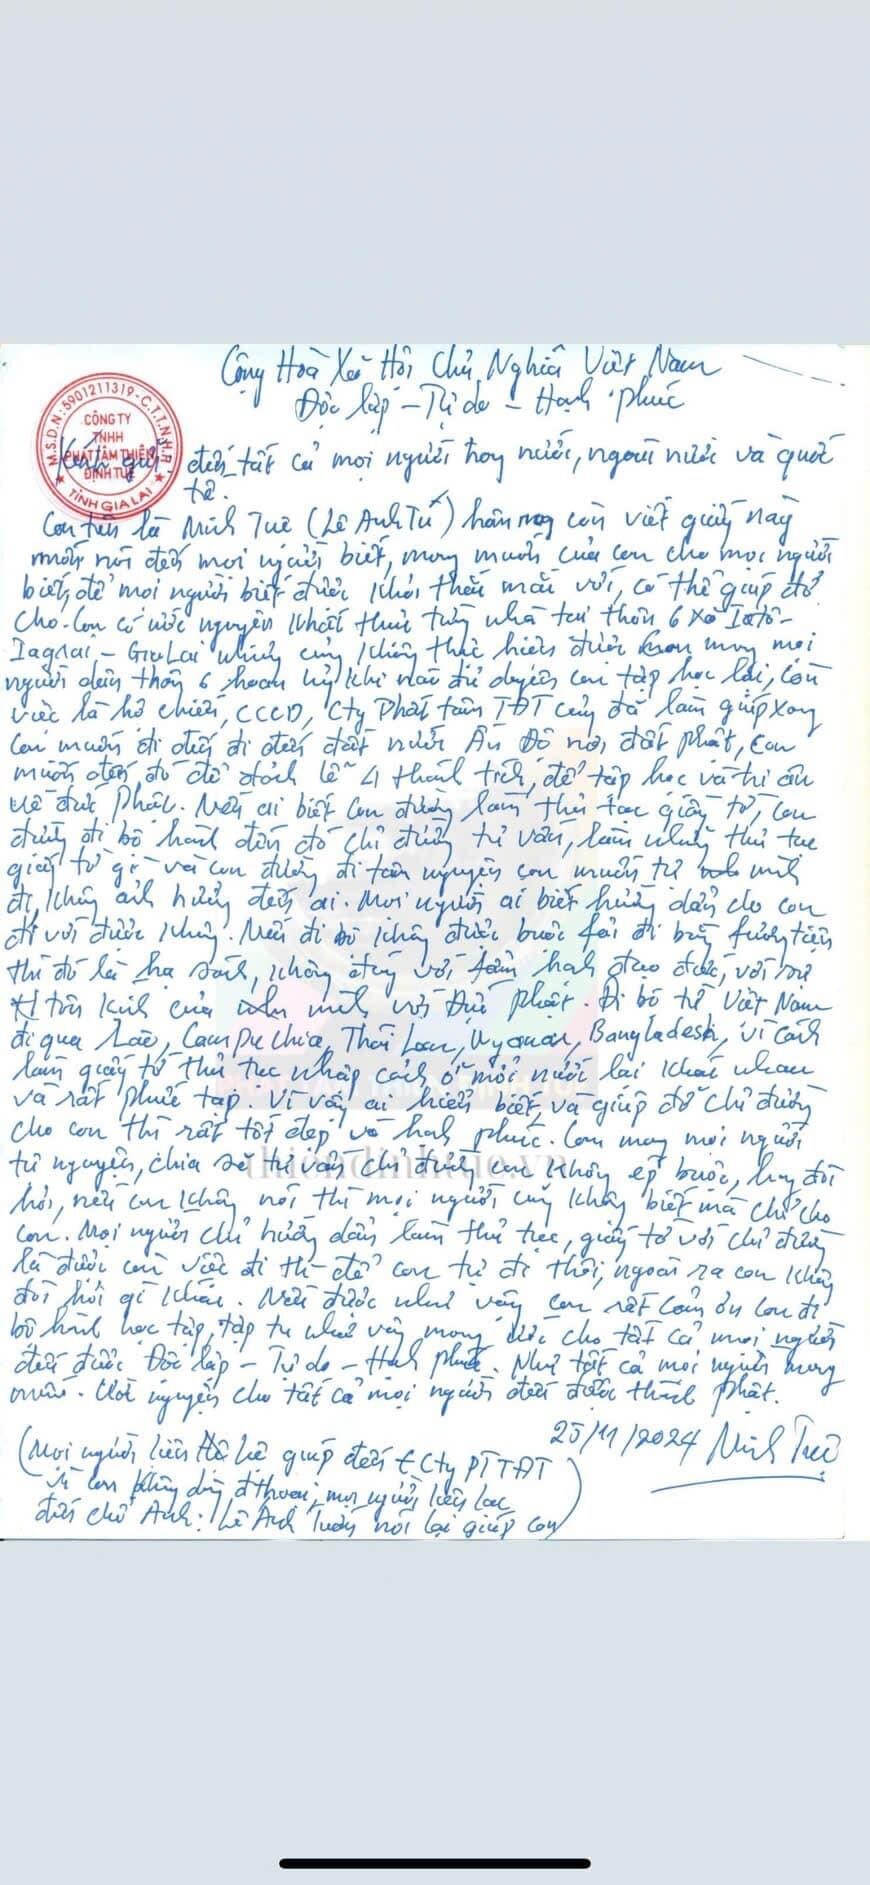 Cộng Hoà Xã Hội Chủ Nghĩa Việt Nam
Độc lập - Tự do - Hạnh phúc
M.S.D.N: 5901211319 - C.T.T.N.H.H
CÔNG TY
TNHH
PHÁT TÂM THIỀN
ĐỊNH TUỆ
TỈNH GIA LAI
Kính gửi đến tất cả mọi người trong nước, ngoài nước và quốc
tế.
Con tên là Minh Tuệ (Lê Anh Tú) hôm nay con viết giấy này
muốn nói đến mọi người biết, mong muốn của con cho mọi người
biết, để mọi người biết được khỏi thắc mắc với, có thể giúp đỡ
cho. Con có ước nguyện khất thực từng nhà tại thôn 6 xã Iatô-
Iagrai - GiaLai nhưng cũng không thực hiện được mong mọi
người dân thôn 6 hoan hỷ khi nào đủ duyên con tập học lại, còn
việc là hộ chiếu, CCCD, Cty Phát tâm TĐT cũng đã làm giúp xong
con muốn đi đến đi đến đất nước Ấn Độ nơi đất phật, con
muốn đến đó để đảnh lễ 4 thánh tích, để tập học và tri ân
về đức Phật. Nếu ai biết con đường làm thủ tục giấy tờ, con
đường đi bộ hành đến đó chỉ đường tư vấn, làm những thủ tục
giấy tờ gì và con đường đi tâm nguyện con muốn tự mình
đi, không ảnh hưởng đến ai. Mọi người ai biết hướng dẫn cho con
đi với được không. Nếu đi bộ không được buộc phải đi bằng phương tiện
thì đó là hạ sách, không đúng với hạnh đạo đức, với sự
tôn kính của mình với Đức phật. Đi bộ từ Việt Nam
đi qua Lào, Campuchia, Thái Lan, Myanmar, Bangladesh, vì cách
làm giấy tờ thủ tục nhập cảnh ở mỗi nước lại khác nhau
và rất phức tạp. Vì vậy ai hiểu biết và giúp đỡ chỉ đường
cho con thì rất tốt đẹp và hạnh phúc. Con mong mọi người
tự nguyện, chia sẻ tư vấn chỉ đường con không ép buộc, hay đòi
hỏi, nếu con không nói thì mọi người cũng không biết mà chỉ cho
con. Mọi người chỉ hướng dẫn làm thủ tục, giấy tờ với chỉ đường
là được còn việc đi thì để con tự đi thôi, ngoài ra con không
đòi hỏi gì khác. Nếu được như vậy con rất cảm ơn con đi
bộ hành học tập, tập tu như vậy mong ước cho tất cả mọi người
đến được Độc lập - Tự do - Hạnh phúc. Như tất cả mọi người mong
muốn. Ước nguyện cho tất cả mọi người đến được thành phật.
25/11/2024 Minh Tuệ
(Mọi người liên hệ giúp đến Cty PTTĐT
vì con không dùng đ thoại, mọi người liên lạc
đến chỗ Anh: Lê Anh Tuấn nói lại giúp con)
thiendinhtue.vn